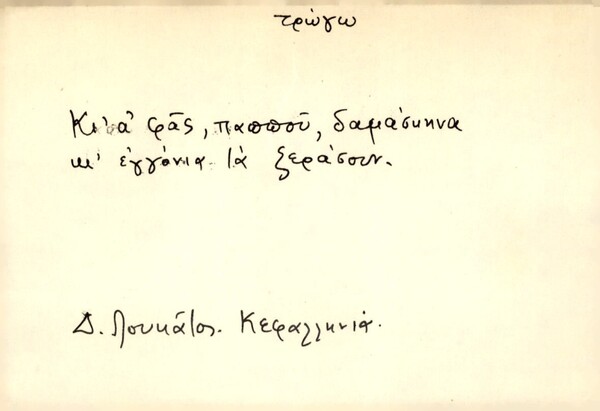 τρώγω
Κι' ἀ' φᾶς, παπποῦ, δαμάσκηνα
κι' ἐγγόνια θὰ ξεράσουν.
Δ. Λουκᾶτος. Κεφαλληνιά.